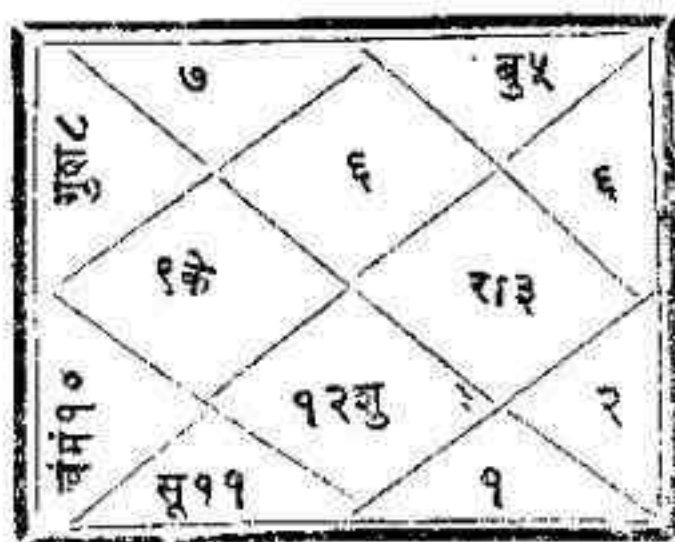 ७
बु५
गुश८
६
६
९के
रा३
चंमं१०
१२शु
२
सू११
१